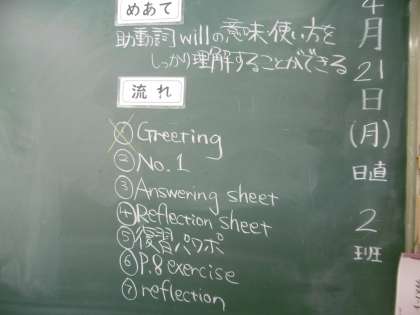 めあて
助動詞willの意味・使い方を
しっかり理解することができる
流れ
① Greeting
② No.1
③ Answering sheet
④ Reflection sheet
⑤ 復習パワポ
⑥ P.8 exercise
⑦ reflection
4月21日(月)
日直 2班